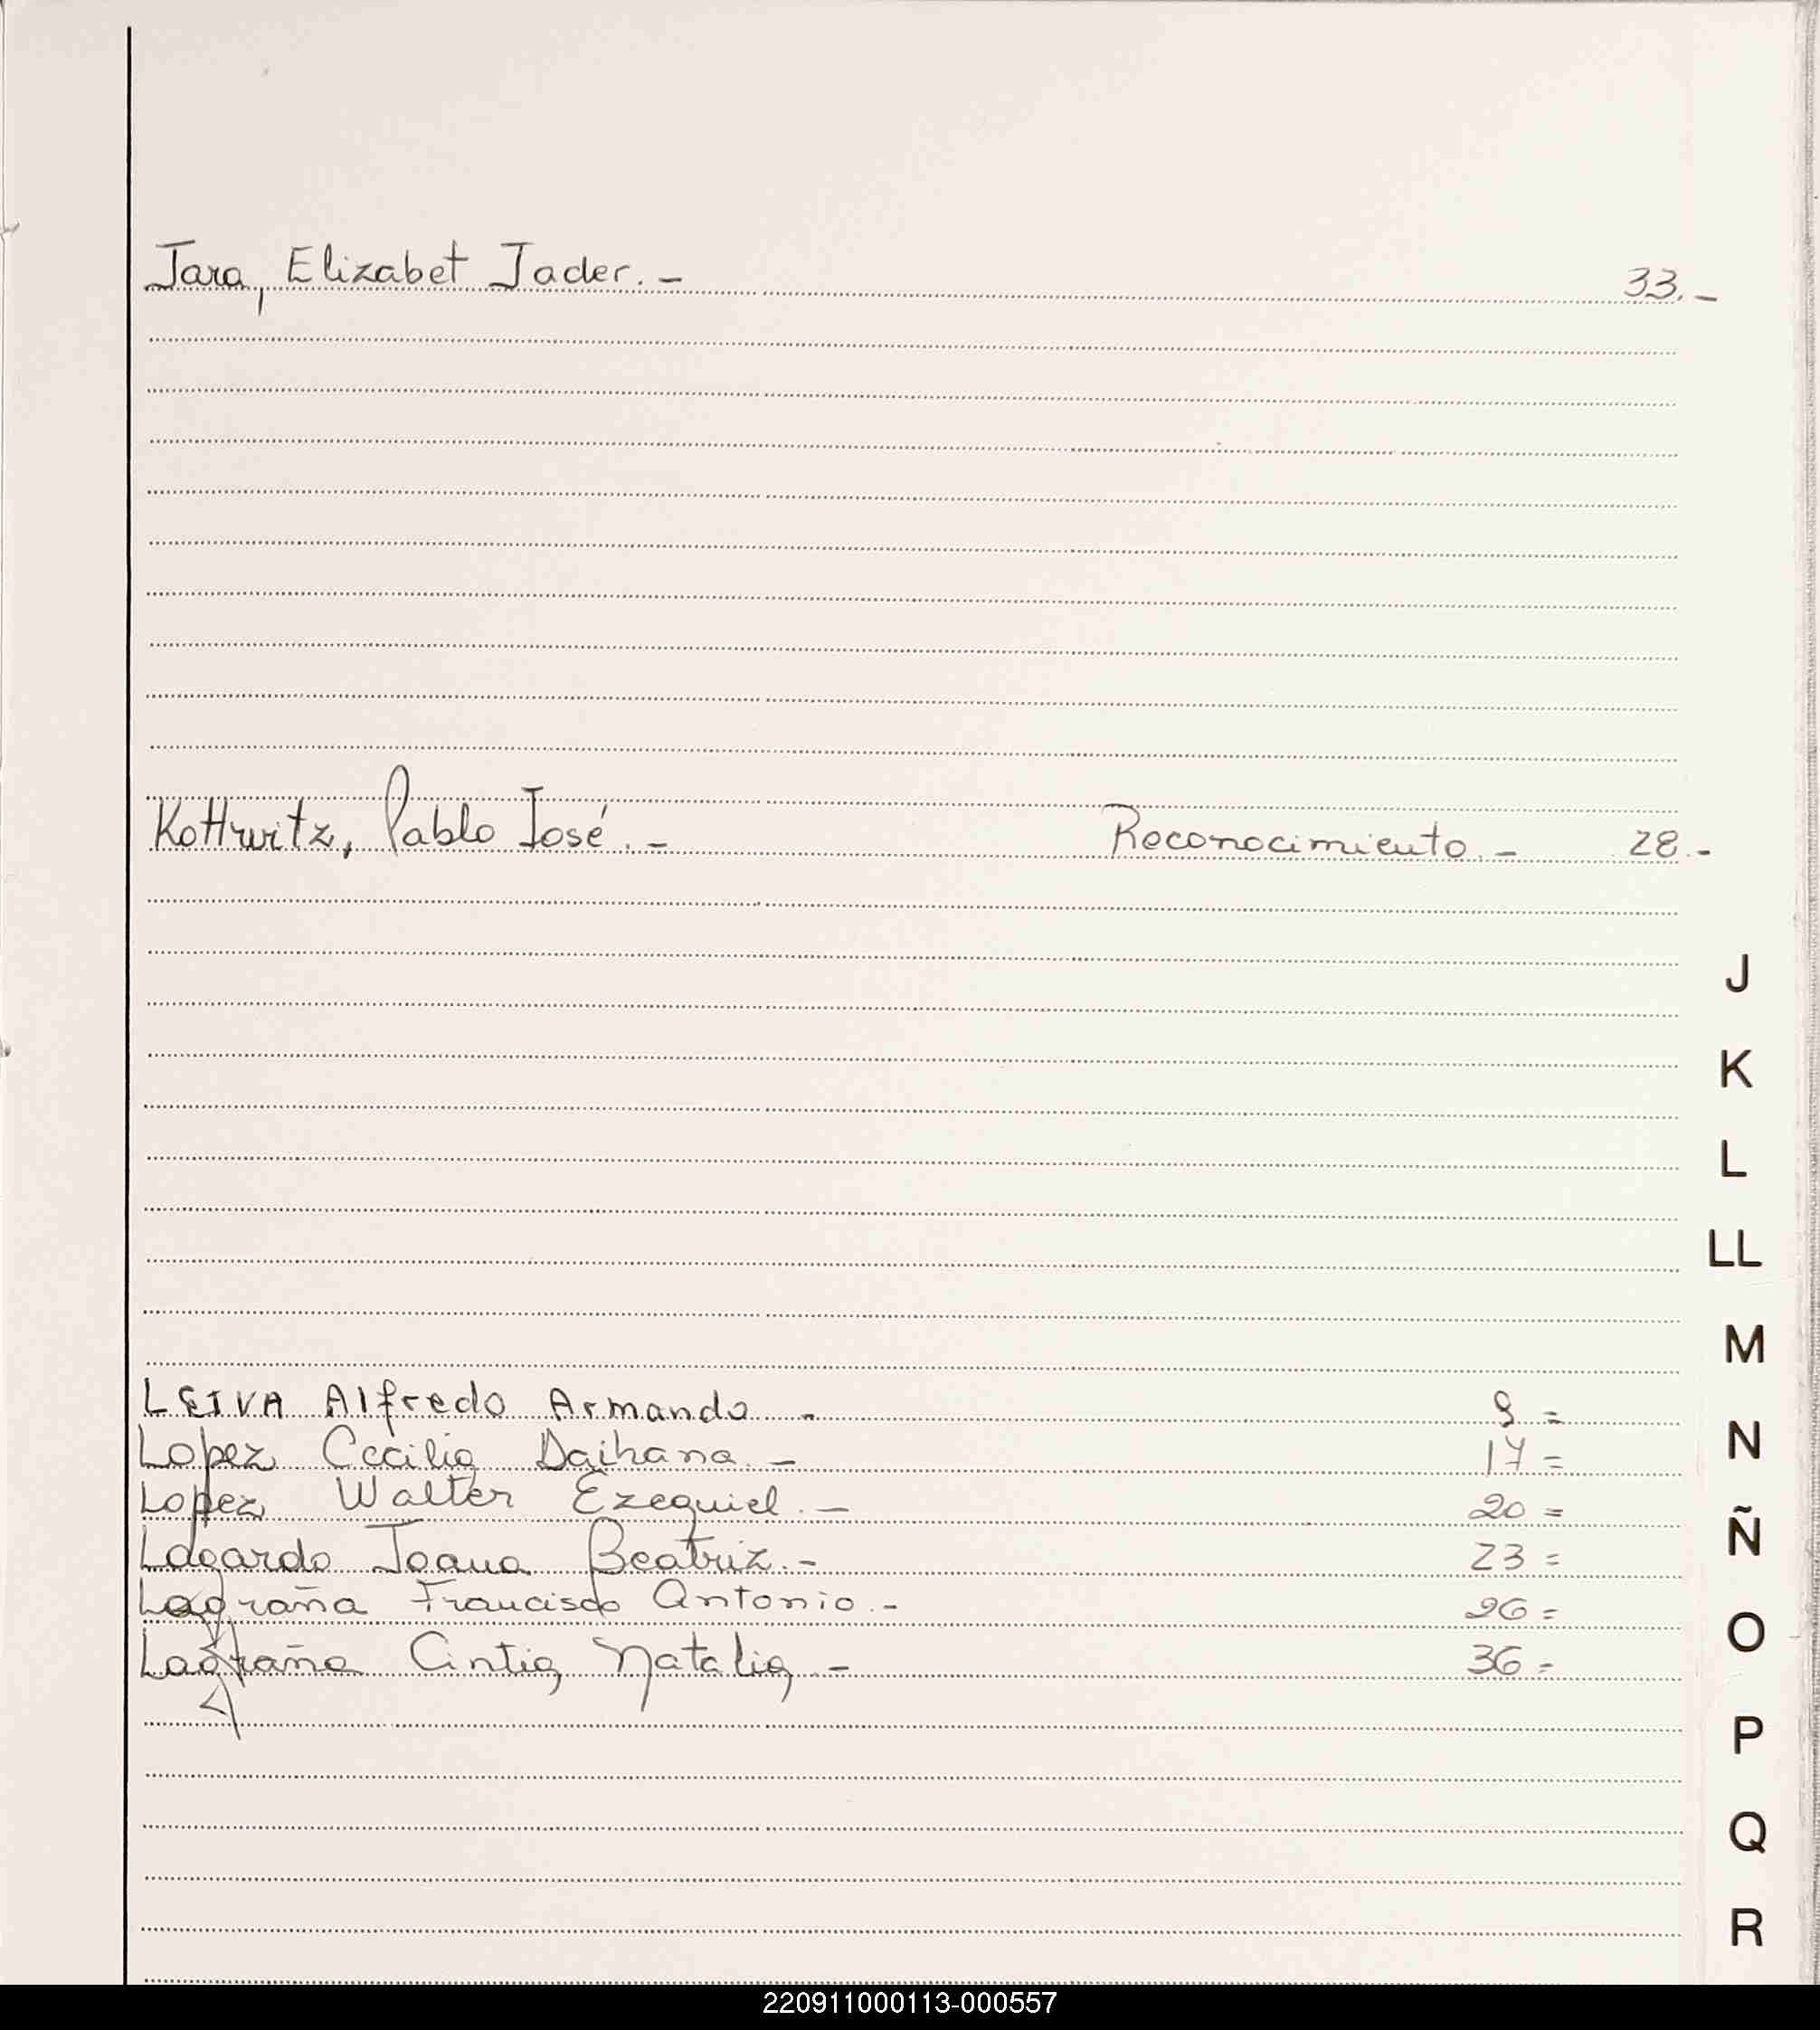 Jara, Elizabet Jader. - 33. -
Kottwitz, Pablo José. - Reconocimiento. - 28. -
J
K
L
LL
M
LEIVA Alfredo Armando - 9 =
N
Lopez Cecilia Daihana. - 17 =
Lopez Walter Ezequiel. - 20 =
Ñ
Logardo Joana Beatriz. - 23 =
Lagraña Francisco Antonio. - 26 =
O
Lagraña Cintia Natalia. - 36 =
P
Q
R
220911000113-000557